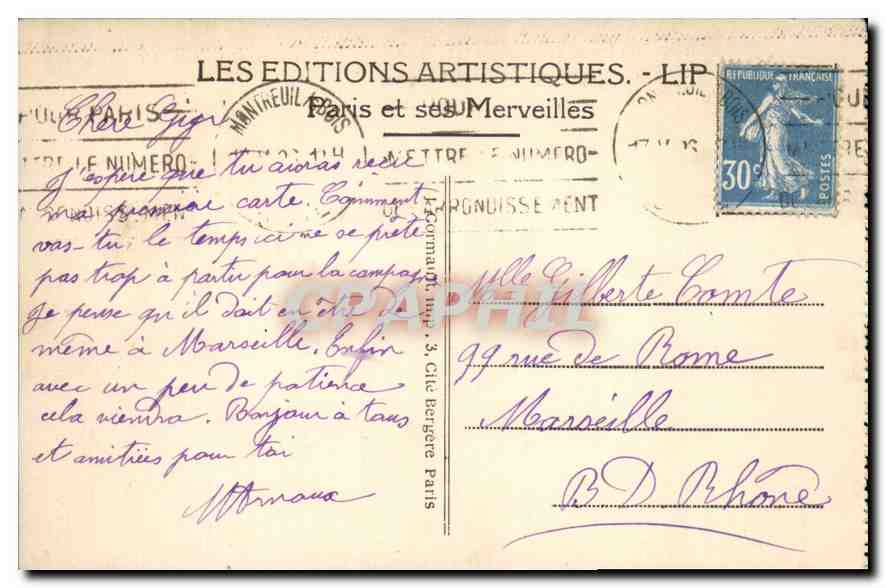 LES EDITIONS ARTISTIQUES. - LIP
Paris et ses Merveilles
POUR PARIS
METTRE LE NUMERO-
MONTREUIL S BOIS
METTRE LE NUMERO-
ARRONDISSEMENT
REPUBLIQUE FRANÇAISE
30c
POSTES
Chère Gigi
J'espère que tu auras reçu
ma première carte. Comment
vas-tu, le temps ici ne se prête
pas trop à partir pour la campagne
je pense qu'il doit en être de
même à Marseille. Enfin
avec un peu de patience
cela viendra. Bonjour à tous
et amitiées pour toi
MArnoux
Imp. 3, Cité Bergère Paris
CPAPHIL
Mlle Gilberte Comte
99 rue de Rome
Marseille
B D. Rhône